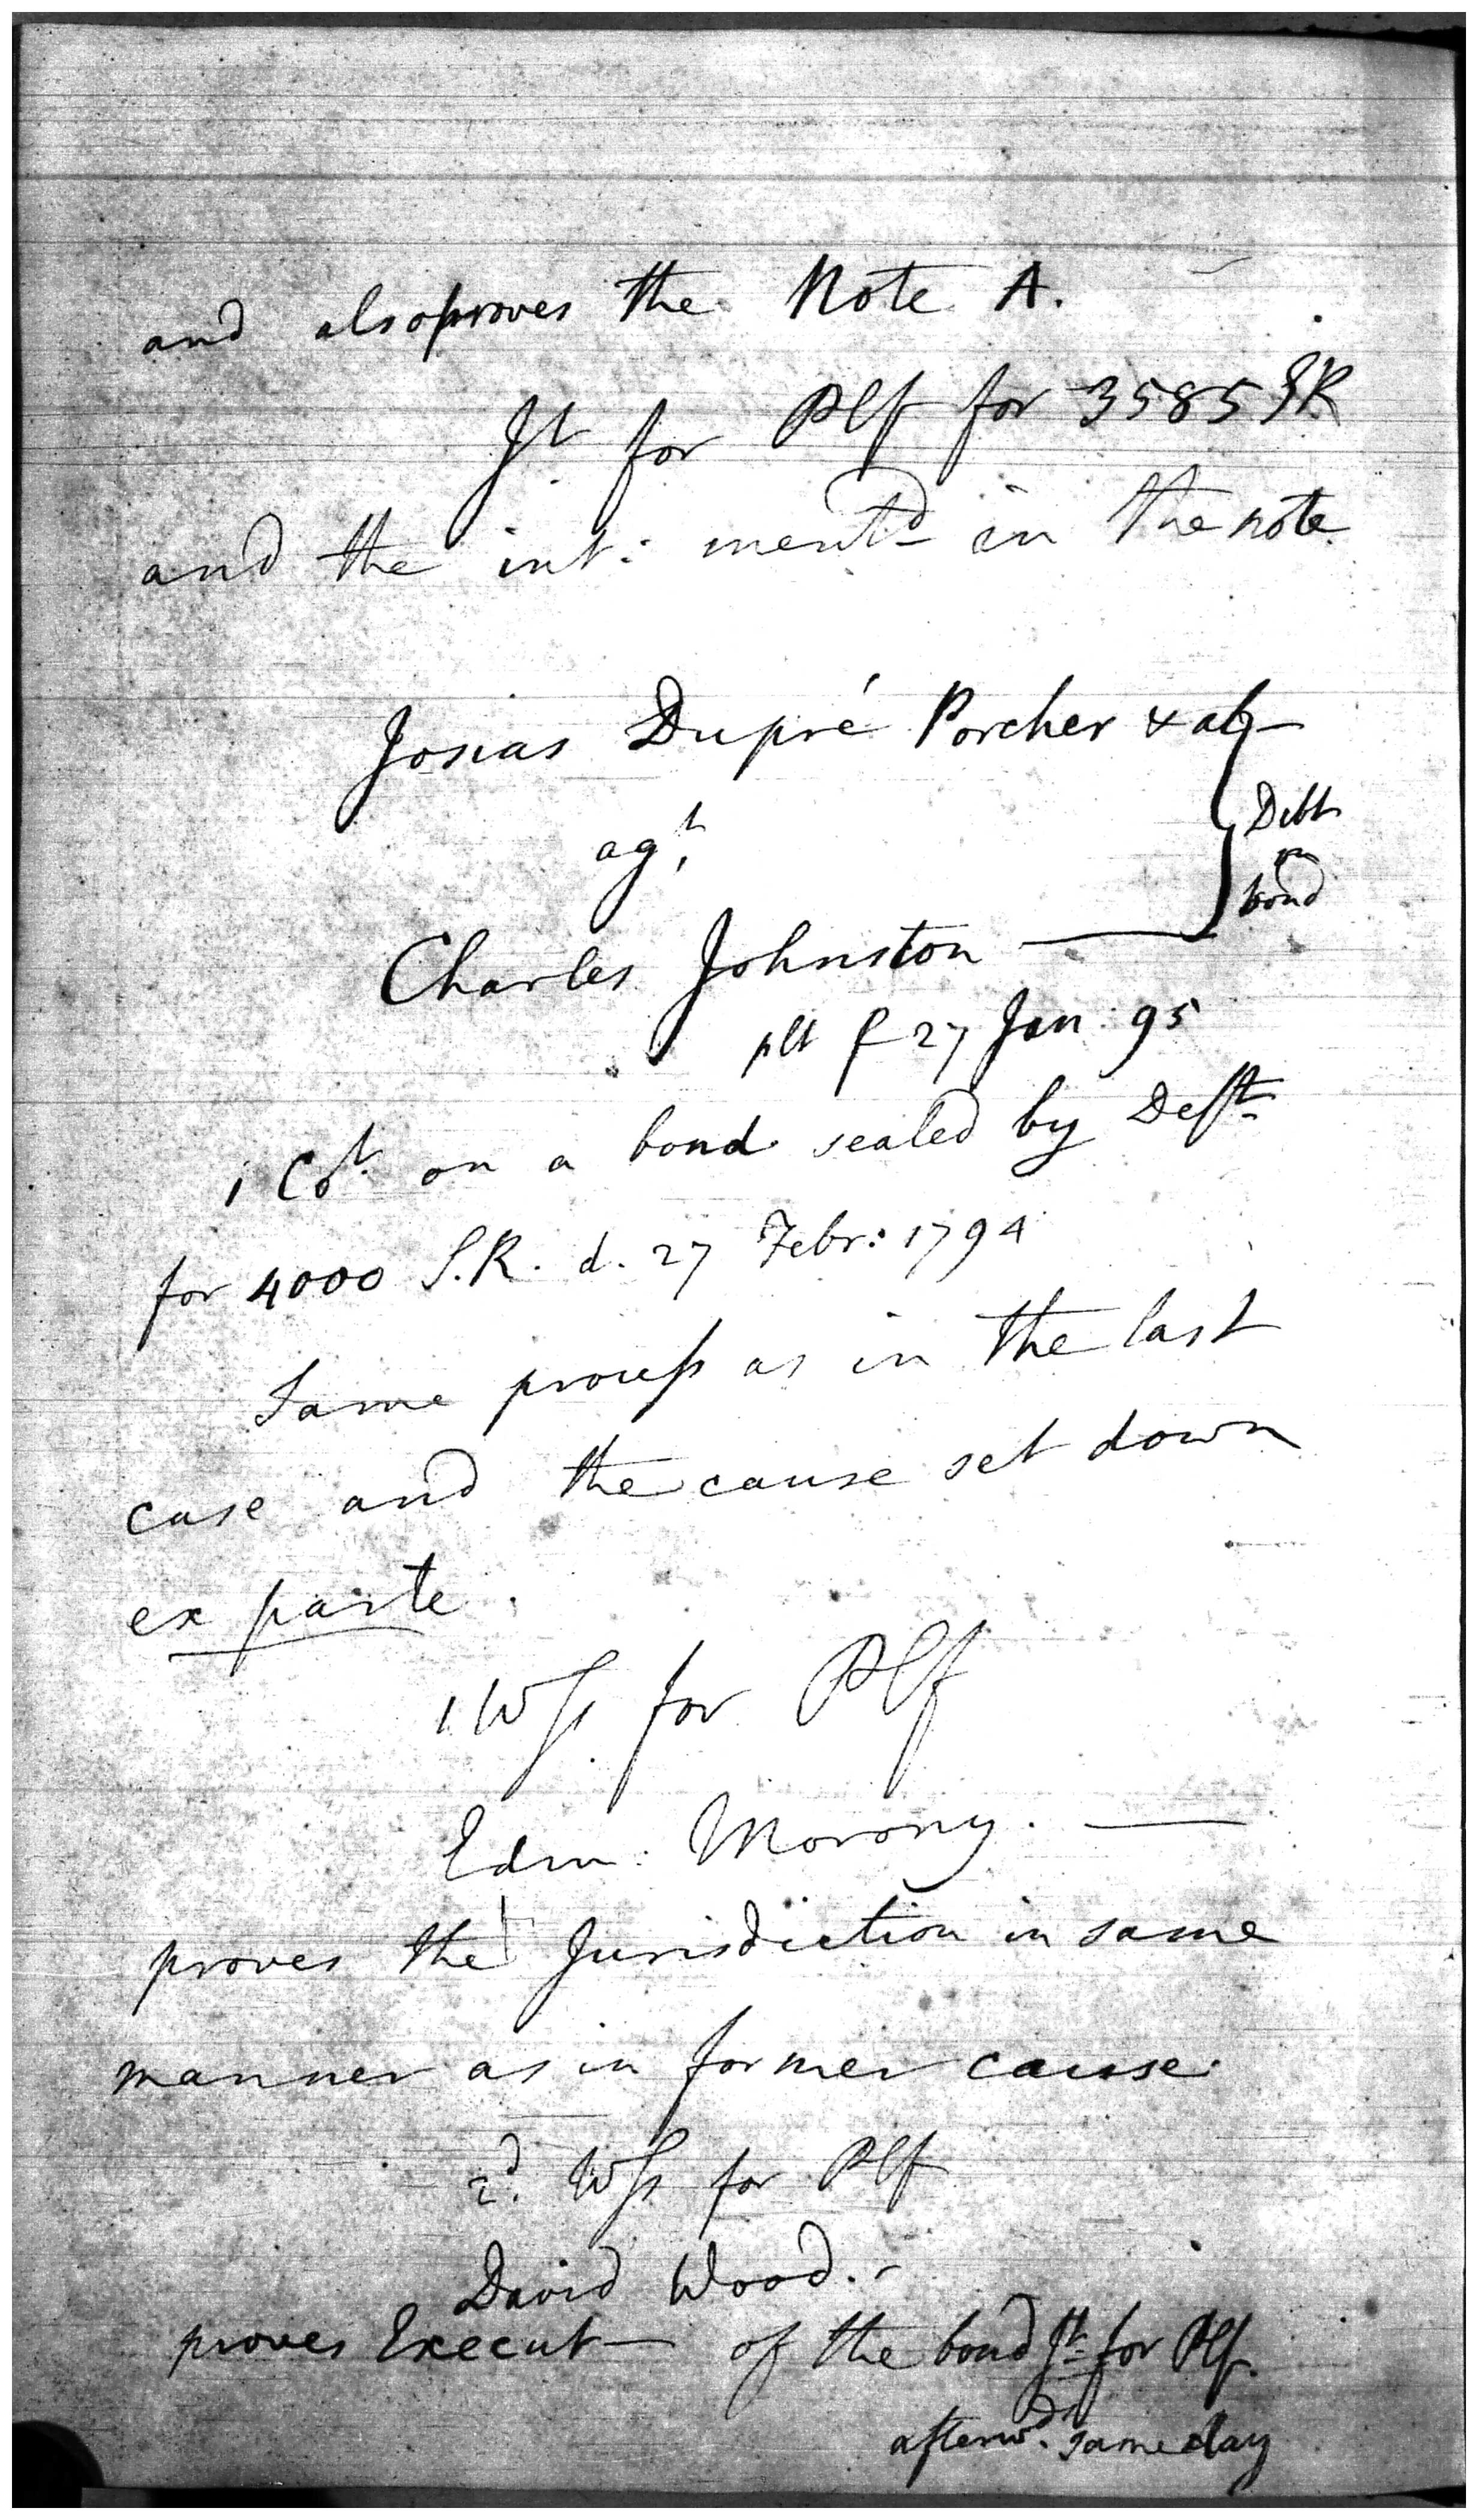 and also proves the Note A.
Jt for Plf for 3585 SR
and the int: mentd in the note
Josias Dupré Porcher & al
agt
Debt
on
bond
Charles Johnston
plt f 27 Jan: 95
1 Ct. on a bond sealed by Deft
for 4000 S.R. d. 27 Febr: 1794
Same process as in the last
case and the cause set down
ex parte.
1. Wss. for Plf
Edm: Morony.
proves the Jurisdiction in same
manner as in former cause.
2d. Wss for Plf
David Wood.
proves Execut of the bond Jt for Plf.
afterwd. same day